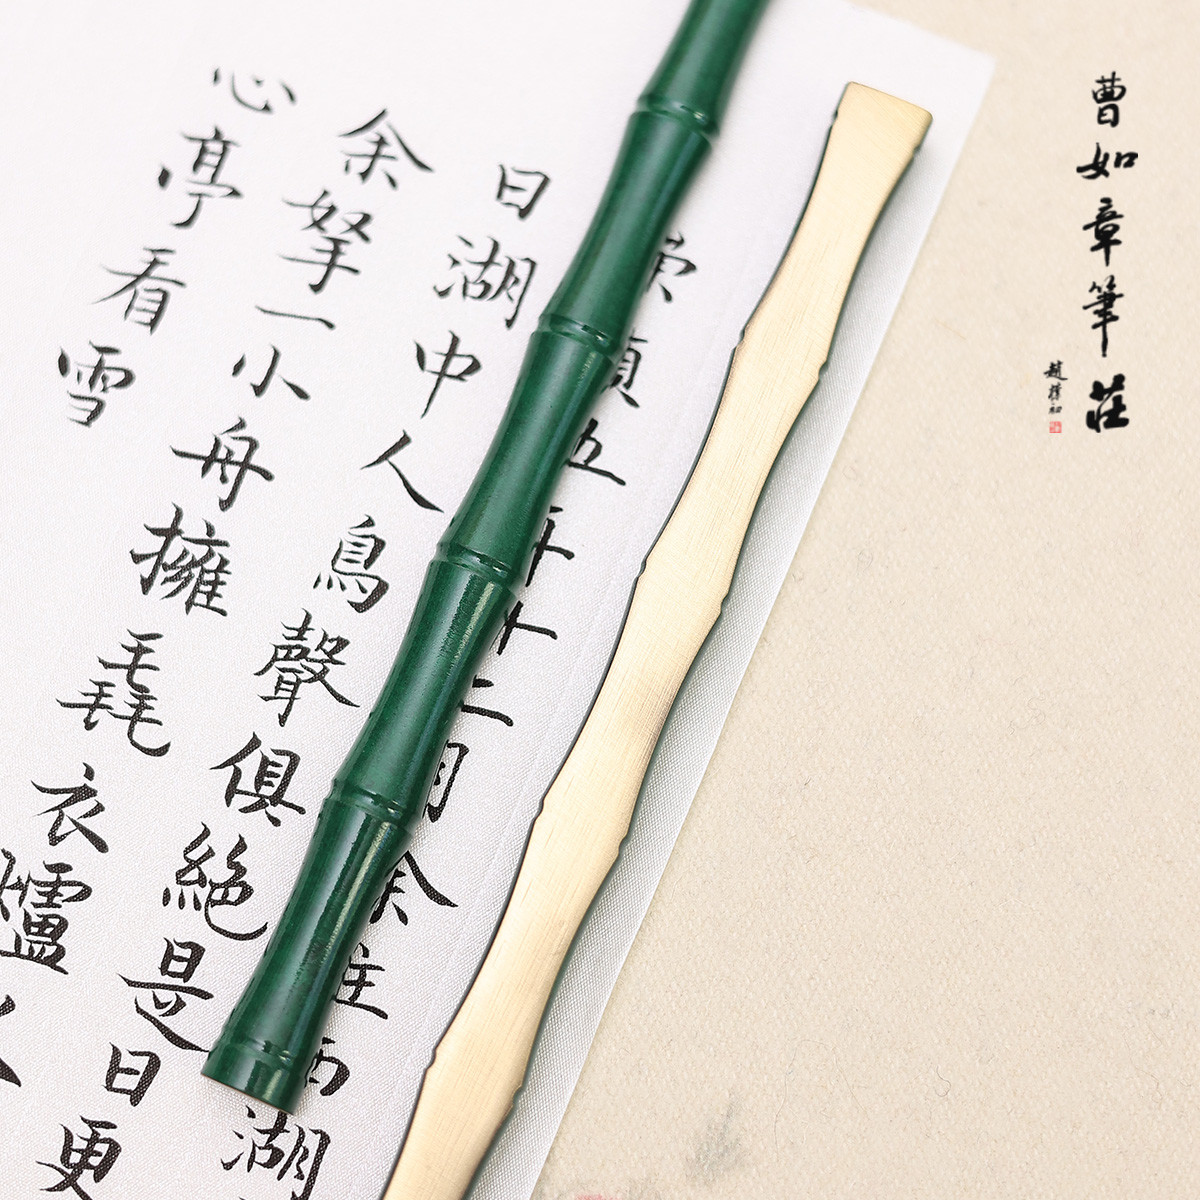 曹如章筆莊
趙樸初
崇禎五年十二月余住西湖
日湖中人鳥聲俱絕是日更
余拏一小舟擁毳衣爐火
心亭看雪